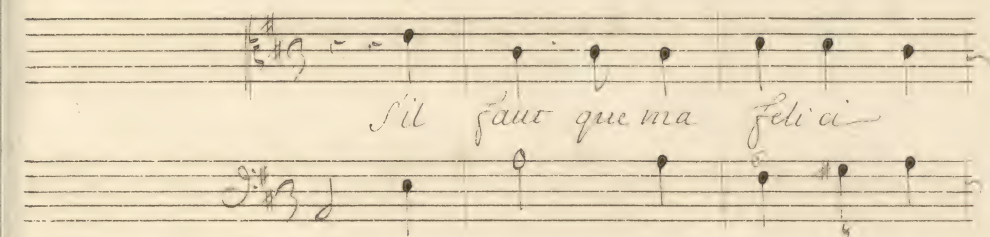 S'il faut que ma felici